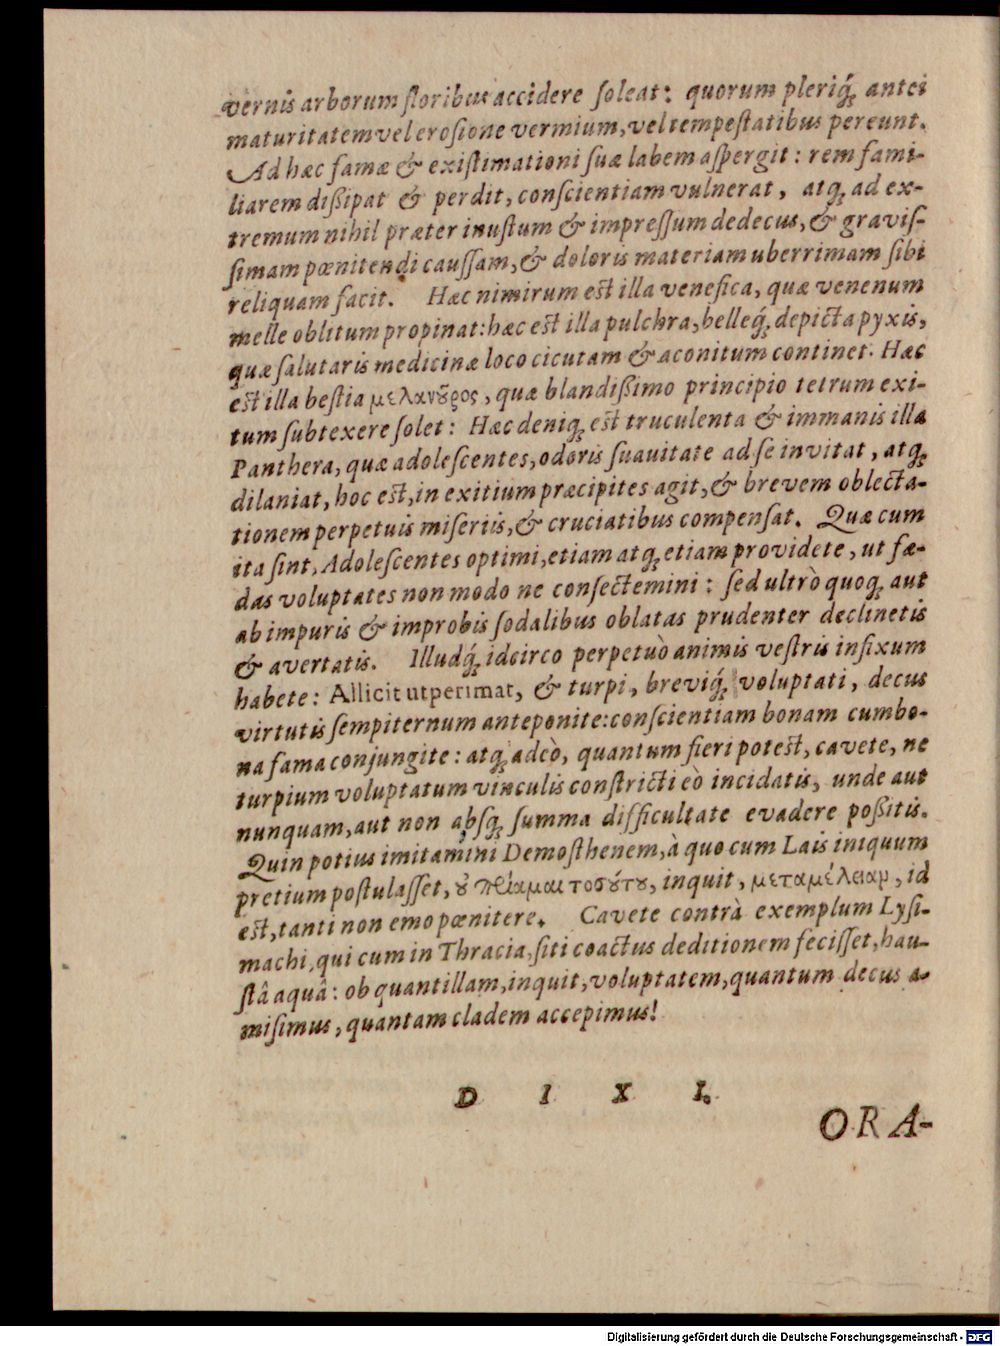 vernis arborum floribus accidere ſoleat: quorum pleriq́; antei
maturitatem vel eroſione vermium, vel tempeſtatibus pereunt.
Ad hæc famæ & exiſtimationi ſuæ labem aſpergit: rem fami-
liarem dißipat & perdit, conſcientiam vulnerat, atq; ad ex-
tremum nihil præter inuſtum & impreſſum dedecus, & graviſ-
ſimam pœnitendi cauſſam, & doloris materiam uberrimam ſibi
reliquam facit. Hæc nimirum eſt illa venefica, quæ venenum
melle oblitum propinat: hæc eſt illa pulchra, belleq́; depicta pyxis,
quæ ſalutaris medicinæ loco cicutam & aconitum continet. Hæc
eſt illa beſtia μελανȣ̃ρος, quæ blandißimo principio tetrum exi-
tum ſubtexere ſolet: Hæc deniq; eſt truculenta & immanis illa
Panthera, quæ adoleſcentes, odoris ſuauitate ad ſe invitat, atq;
dilaniat, hoc eſt, in exitium præcipites agit, & brevem oblecta-
tionem perpetuis miſeriis, & cruciatibus compenſat. Quæ cum
ita ſint, Adoleſcentes optimi, etiam atq; etiam providete, ut fæ-
das voluptates non modo ne conſectemini: ſed ultrò quoq; aut
ab impuris & improbis ſodalibus oblatas prudenter declinetis
& avertatis. Illudq́; idcirco perpetuò animis veſtris infixum
habete: Allicit ut perimat, & turpi, breviq́; voluptati, decus
virtutis ſempiternum anteponite: conſcientiam bonam cum bo-
na fama conjungite: atq; adeò, quantum fieri poteſt, cavete, ne
turpium voluptatum vinculis conſtricti eò incidatis, unde aut
nunquam, aut non abſq; ſumma difficultate evadere poßitis.
Quin potius imitamini Demoſthenem, à quo cum Lais iniquum
pretium poſtulaſſet, ȣ̓ πρίαμαι τοσȣ́τȣ, inquit, μεταμέλειαν, id
eſt, tanti non emo pœnitere. Cavete contrà exemplum Lyſi-
machi, qui cum in Thracia, ſiti coactus deditionem feciſſet, hau-
ſtâ aquâ: ob quantillam, inquit, voluptatem, quantum decus a-
miſimus, quantam cladem accepimus!
D I X I.
ORA-
Digitalisierung gefördert durch die Deutsche Forschungsgemeinschaft - DFG